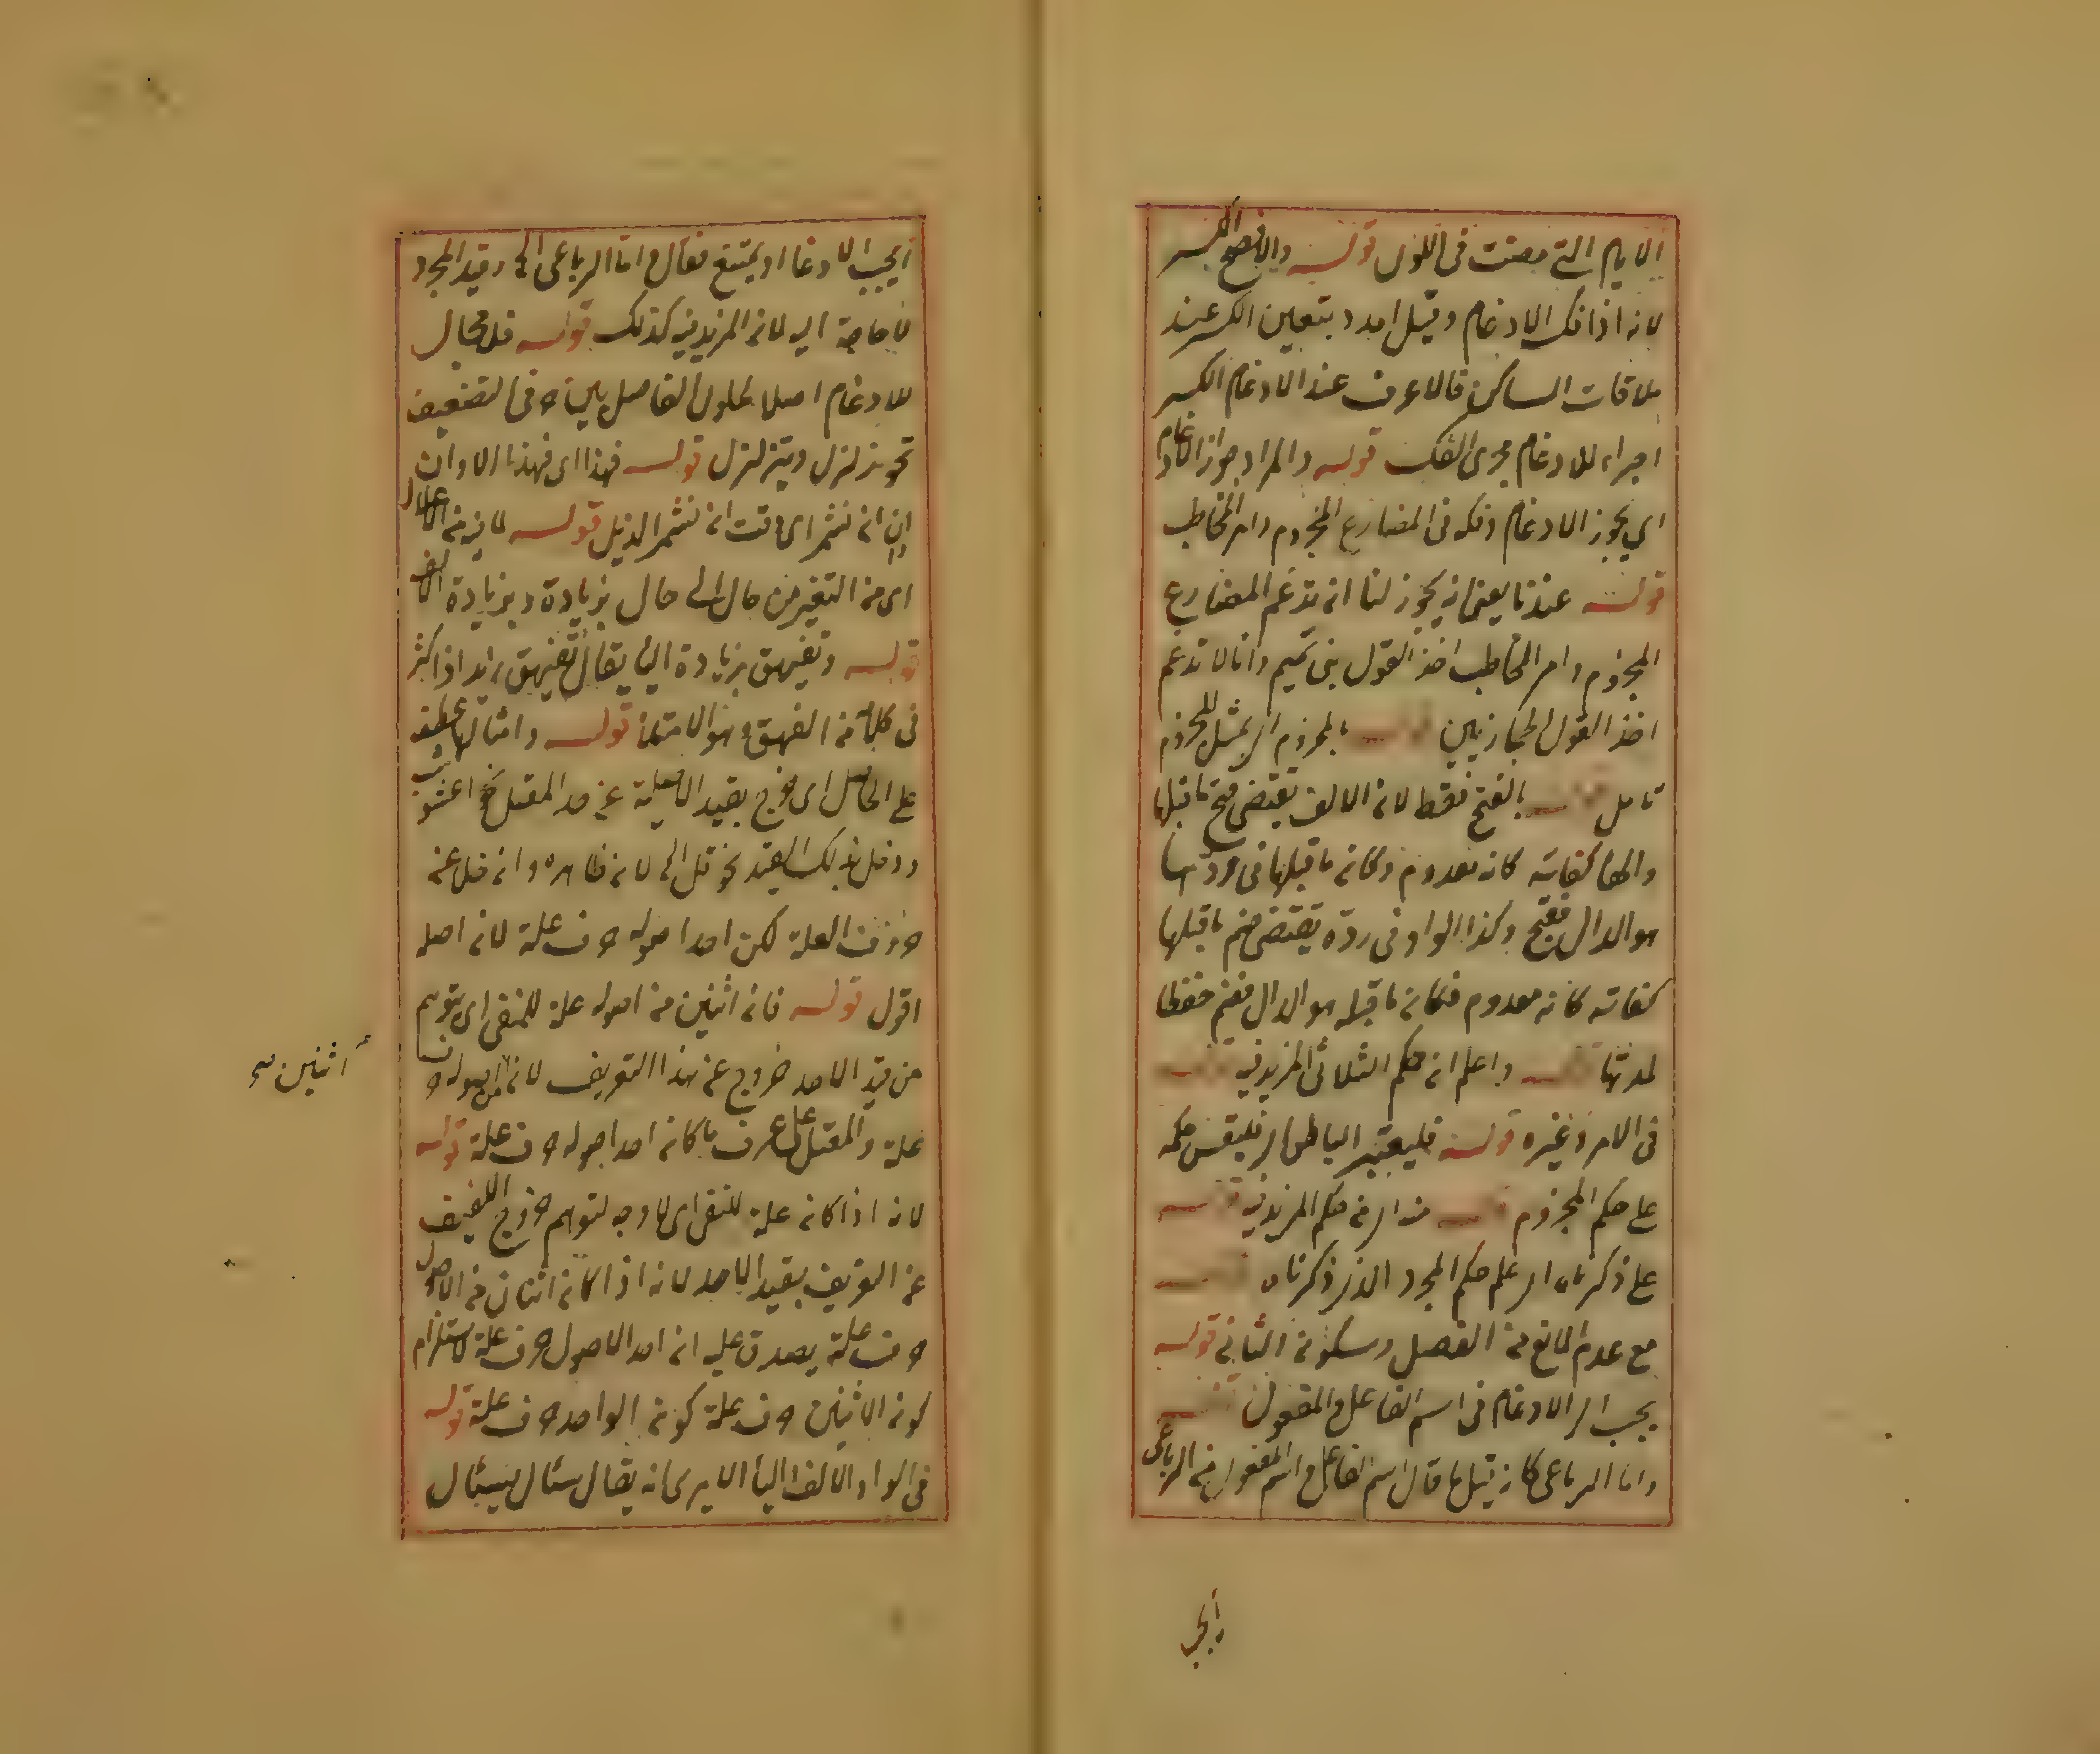 الايام التي مضت في اللزل قوله والافصح الكسر
لانه اذا فك الادغام وقيل امدد يتعين الكسر عند
ملاقات الساكن فالاعرف عند الادغام الكسر
اجراء للادغام مجرى الفك قوله والمراد جواز الادغام
اي يجوز الادغام وفكه في المضارع المجزوم وامر المخاطب
قوله عندنا يعني انه يجوز لنا ان ندغم المضارع
المجزوم وامر المخاطب اخذ القول بني تميم وان لا ندغم
اخذ القول الحجازيين قوله بلمجزوم اي بمثل للمجزوم
تامل قوله بالفتح فقط لان الالف يقتضي فتح ما قبلها
والها لخفائه كانه معدوم وكان ما قبلها في ردها
هو الدال ففتح وكذا الواو في رده يقتضي ضم ما قبلها
لخفائه كانه معدوم فكان ما قبله هو الدال فضم حفظا
لمدتها قوله واعلم ان حكم الثلاثي المزيد فيه قوله
في الامر وغيره قوله فليعتبر الناظر اي فليقس حكمه
على حكم المجزوم قوله منه اي من حكم المزيد فيه قوله
على ذكرناه اي علم حكم المجرد الذي ذكرناه قوله
مع عدم المانع من الفصل وسكون الثاني قوله
يجب اي الادغام في اسم الفاعل والمفعول قوله
واما الرباعي كانه قيل ما قال اسم الفاعل واسم المفعول من الرباعي
ايجب
ايجب الادغام او يمتنع فقال واما الرباعي الخ وقيد المجرد
لا حاجة اليه لان المزيد فيه كذلك قوله فلا مجال
للادغام اصلا لحلول الفاصل بين حرفي التضعيف
نحو زلزل ويتزلزل قوله فهذا اي فهذا الاوان
ان ان نشمر اي وقت ان نشمر الذيل قوله لما فيه من الاعلال
اي من التغير من حال الى حال بزيادة وبزيادة الالف
قوله وتفيهق بزيادة اليا يقال تفيهق زيد اذا كثر
في كلامه من الفهق وهو الامتلا قوله وامثالها عطف
على الحاصل اي خرج بقيد الاصلية عن حد المعتل نحو اعشوشب
ودخل بذلك القيد نحو قل الخ لانه ظاهره وان خلا عن
حروف العلة لكن احد اصوله حرف علة لان اصله
اقول قوله فان اثنين من اصوله علة للنفي اي يتوهم
من قيد الاحد خروج عن هذا التعريف لان من اصوله حرفا
اثنين صح
علة والمعتل على عرف ما كان احد اصوله حرف علة قوله
لانه اذا كان علة للنفي اي لا وجه لتوهم خروج اللفيف
عن التعريف بقيد الاحد لانه اذا كان اثنان من الاصول
حرف علة يصدق عليه ان احد الاصول حرف علة لاستلزام
كون الاثنين حرف علة كون الواحد حرف علة قوله
في الواو والالف واليا الا يرى انه يقال سئال يسئال